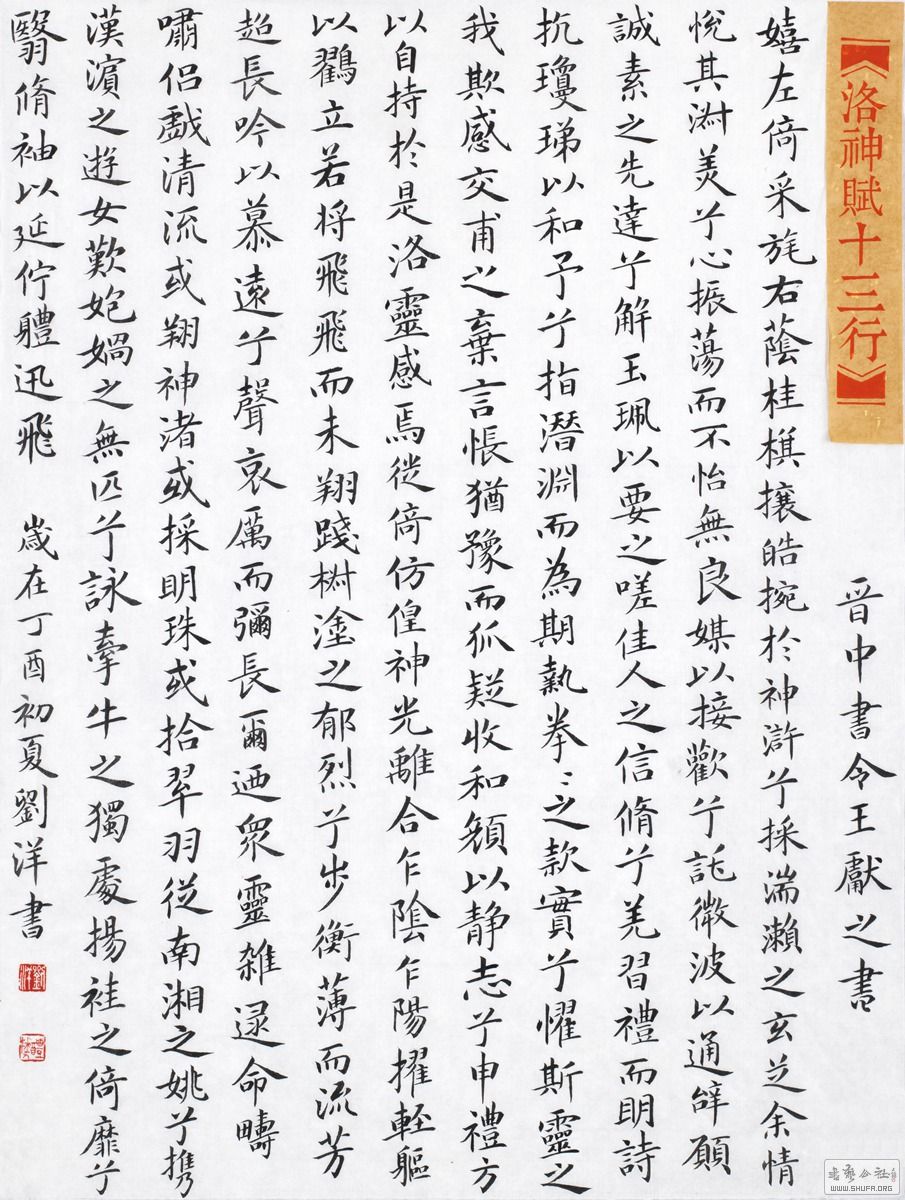 《洛神賦十三行》
晉中書令王獻之書
嬉左倚采旄右蔭桂棋攘皓捥於神滸兮採湍瀨之玄芝余情
悅其淑美兮心振蕩而不怡無良媒以接歡兮託微波以通辭願
誠素之先達兮解玉珮以要之嗟佳人之信脩兮羌習禮而明詩
抗瓊珶以和予兮指潛淵而為期執拳〻之款實兮懼斯靈之
我欺感交甫之棄言悵猶豫而狐疑收和顏以静志兮申禮方
以自持於是洛靈感焉徙倚仿偟神光離合乍陰乍陽擢輕軀
以鶴立若將飛飛而未翔踐椒塗之郁烈兮步衡薄而流芳
超長吟以慕遠兮聲哀厲而彌長爾迺眾靈雜遝命疇
嘯侶戲清流或翔神渚或採明珠或拾翠羽從南湘之姚兮携
漢濱之遊女歎匏媧之無匹兮詠牽牛之獨處揚袿之倚靡兮
翳脩袖以延佇軆迅飛 歲在丁酉初夏劉洋書
WWW.SHUFA.ORG